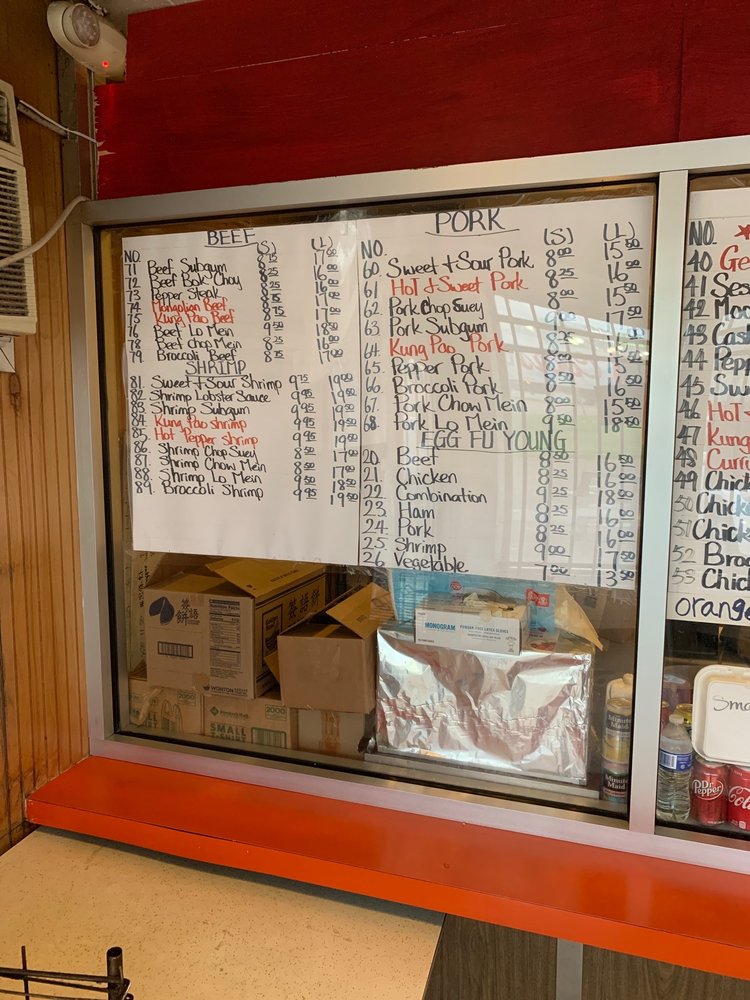 BEEF
NO. (S) (L)
71 Beef Subgum 8.75 17.00
72 Beef Bok Choy 8.25 16.00
73 Pepper Steak 8.75 17.00
74 Mongolian Beef 8.75 17.00
75 Kung Pao Beef 8.75 17.00
76 Beef Lo Mein 9.50 18.50
78 Beef Chop Mein 8.25 16.00
79 Broccoli Beef 8.75 17.00
SHRIMP
81. Sweet & Sour Shrimp 9.75 19.00
82 Shrimp Lobster Sauce 9.95 19.50
83 Shrimp Subgum 9.95 19.50
84 Kung Pao Shrimp 9.95 19.50
85. Hot Pepper Shrimp 9.95 19.50
86 Shrimp Chop Suey 8.50 17.00
87 Shrimp Chow Mein 8.50 17.00
88 Shrimp Lo Mein 9.50 18.50
89 Broccoli Shrimp 9.95 19.50
PORK
NO. (S) (L)
60. Sweet & Sour Pork 8.00 15.50
61 Hot & Sweet Pork 8.25 16
62 Pork Chop Suey 8.00 15.50
63 Pork Subgum 8.25
64. Kung Pao Pork
65. Pepper Pork
66 Broccoli Pork 8.50
67. Pork Chow Mein 8.00 15.50
68. Pork Lo Mein 9.50 18.50
EGG FU YOUNG
20. Beef 8.50 16.50
21. Chicken 8.25 16.00
22 Combination 9.25 18.00
23 Ham 8.25 16.00
24. Pork 8.25 16.00
25. Shrimp 9.00 17.50
26 Vegetable 7.00 13.50
NO.
40
41
42
43
44
45
46 Hot
47 Kung
48
49 Chick
50 Chick
51 Chick
52
53 Chic
orang
Sma
Nutrition Facts
WONTON
2000
SMALL
T-SHIRT
MONOGRAM
POWDER FREE LATEX GLOVES
Minute Maid
Minute Maid
Dr Pepper